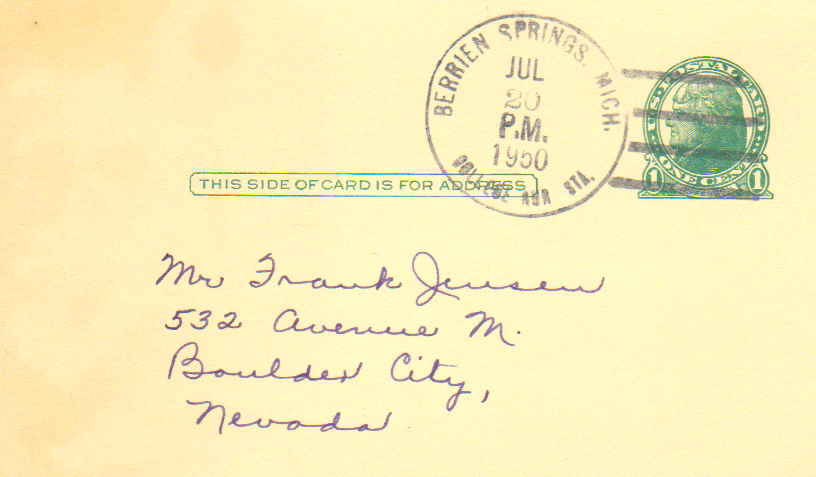 BERRIEN SPRINGS, MICH.
JUL
20
P.M.
1950
COLLEGE RUR STA.
U.S. POSTAL CARD
1 ONE CENT 1
THIS SIDE OF CARD IS FOR ADDRESS
Mr Frank Jensen
532 Avenue M.
Boulder City,
Nevada